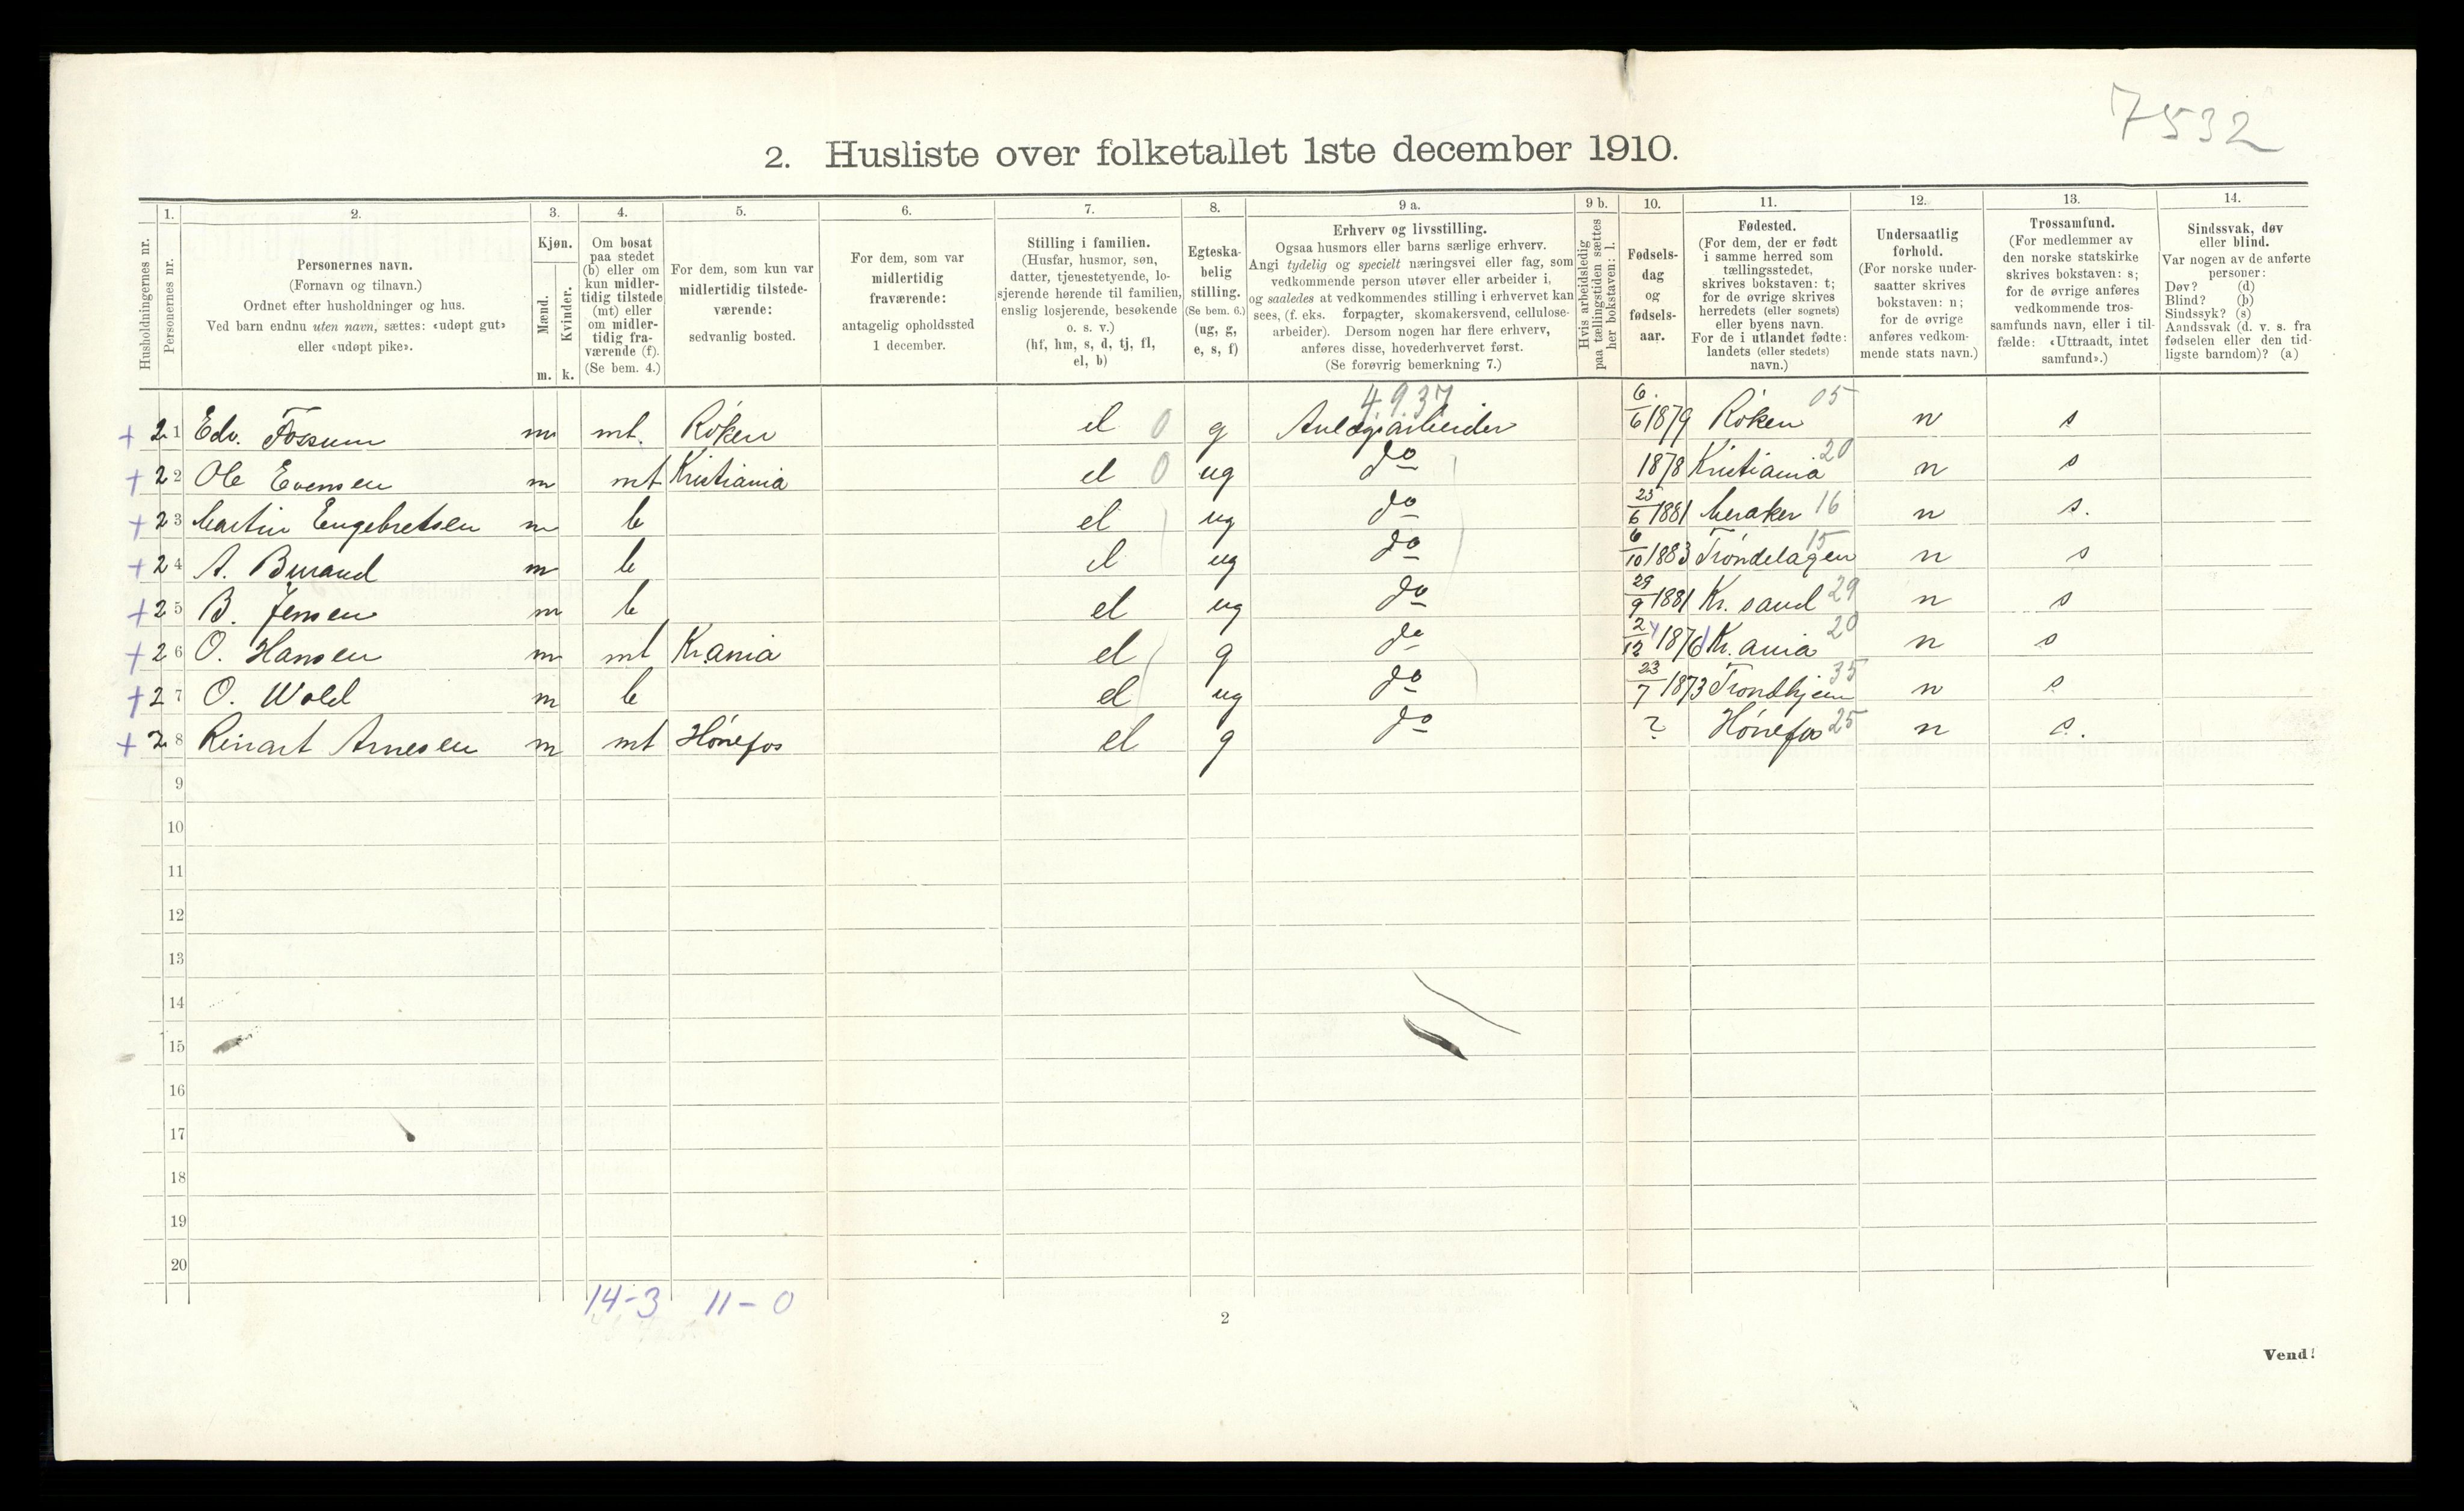 7532
2. Husliste over folketallet 1ste december 1910.
Husholdningernes nr.
1.
Personernes nr.
2.
Personernes navn.
(Fornavn og tilnavn.)
Ordnet efter husholdninger og hus.
Ved barn endnu uten navn, sættes: «udøpt gut»
eller «udøpt pike».
3.
Kjøn.
Mænd.
Kvinder.
m. k.
4.
Om bosat
paa stedet
(b) eller om
kun midler-
tidig tilstede
(mt) eller
om midler-
tidig fra-
værende (f).
(Se bem. 4.)
5.
For dem, som kun var
midlertidig tilstede-
værende:
sedvanlig bosted.
6.
For dem, som var
midlertidig
fraværende:
antagelig opholdssted
1 december.
7.
Stilling i familien.
(Husfar, husmor, søn,
datter, tjenestetyende, lo-
sjerende hørende til familien,
enslig losjerende, besøkende
o. s. v.)
(hf, hm, s, d, tj, fl,
el, b)
8.
Egteska-
belig
stilling.
(Se bem. 6.)
(ug, g,
e, s, f)
9 a.
Erhverv og livsstilling.
Ogsaa husmors eller barns særlige erhverv.
Angi tydelig og specielt næringsvei eller fag, som
vedkommende person utøver eller arbeider i,
og saaledes at vedkommendes stilling i erhvervet kan
sees, (f. eks. forpagter, skomakersvend, cellulose-
arbeider). Dersom nogen har flere erhverv,
anføres disse, hovederhvervet først.
(Se forøvrig bemerkning 7.)
9 b.
Hvis arbeidsledig
paa tællingstiden sættes
her bokstaven: l.
10.
Fødsels-
dag
og
fødsels-
aar.
11.
Fødested.
(For dem, der er født
i samme herred som
tællingsstedet,
skrives bokstaven: t;
for de øvrige skrives
herredets (eller sognets)
eller byens navn.
For de i utlandet fødte:
landets (eller stedets)
navn.)
12.
Undersaatlig
forhold.
(For norske under-
saatter skrives
bokstaven: n;
for de øvrige
anføres vedkom-
mende stats navn.)
13.
Trossamfund.
(For medlemmer av
den norske statskirke
skrives bokstaven: s;
for de øvrige anføres
vedkommende tros-
samfunds navn, eller i til-
fælde: «Uttraadt, intet
samfund».)
14.
Sindssvak, døv
eller blind.
Var nogen av de anførte
personer:
Døv? (d)
Blind? (b)
Sindssyk? (s)
Aandssvak (d. v. s. fra
fødselen eller den tid-
ligste barndom)? (a)
4.9.37
+ 2 1 Edv. Fossum m mt. Röken el 0 g Anlægsarbeider 6/6 1879 Röken 05 n s
+ 2 2 Ole Evensen m mt Kristiania el 0 ug do 1878 Kristiania 20 n s
+ 2 3 Martin Engebretsen m b el ug do 25/6 1881 Meraker 16 n s.
+ 2 4 A. Burand m b el ug do 6/10 1883 Tröndelagen 15 n s
+ 2 5 B. Jensen m b el ug do 29/9 1881 Kr. sand 29 n s
+ 2 6 O. Hansen m mt Kr.ania el g do 2/12 1876 Kr. ania 20 n s
+ 2 7 O. Wold m b el ug do 23/7 1873 Trondhjem 35 n s
+ 2 8 Reinart Arnesen m mt Hönefos el g do ? Hönefos 25 n s.
9
10
11
12
13
14
15
16
17
18
19
20
14-3 11-0
2
Vend!